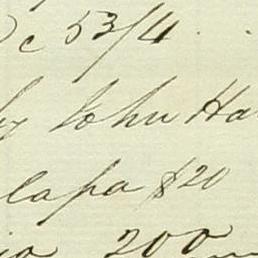 c 53/4
by John Ha
lapa $20
200